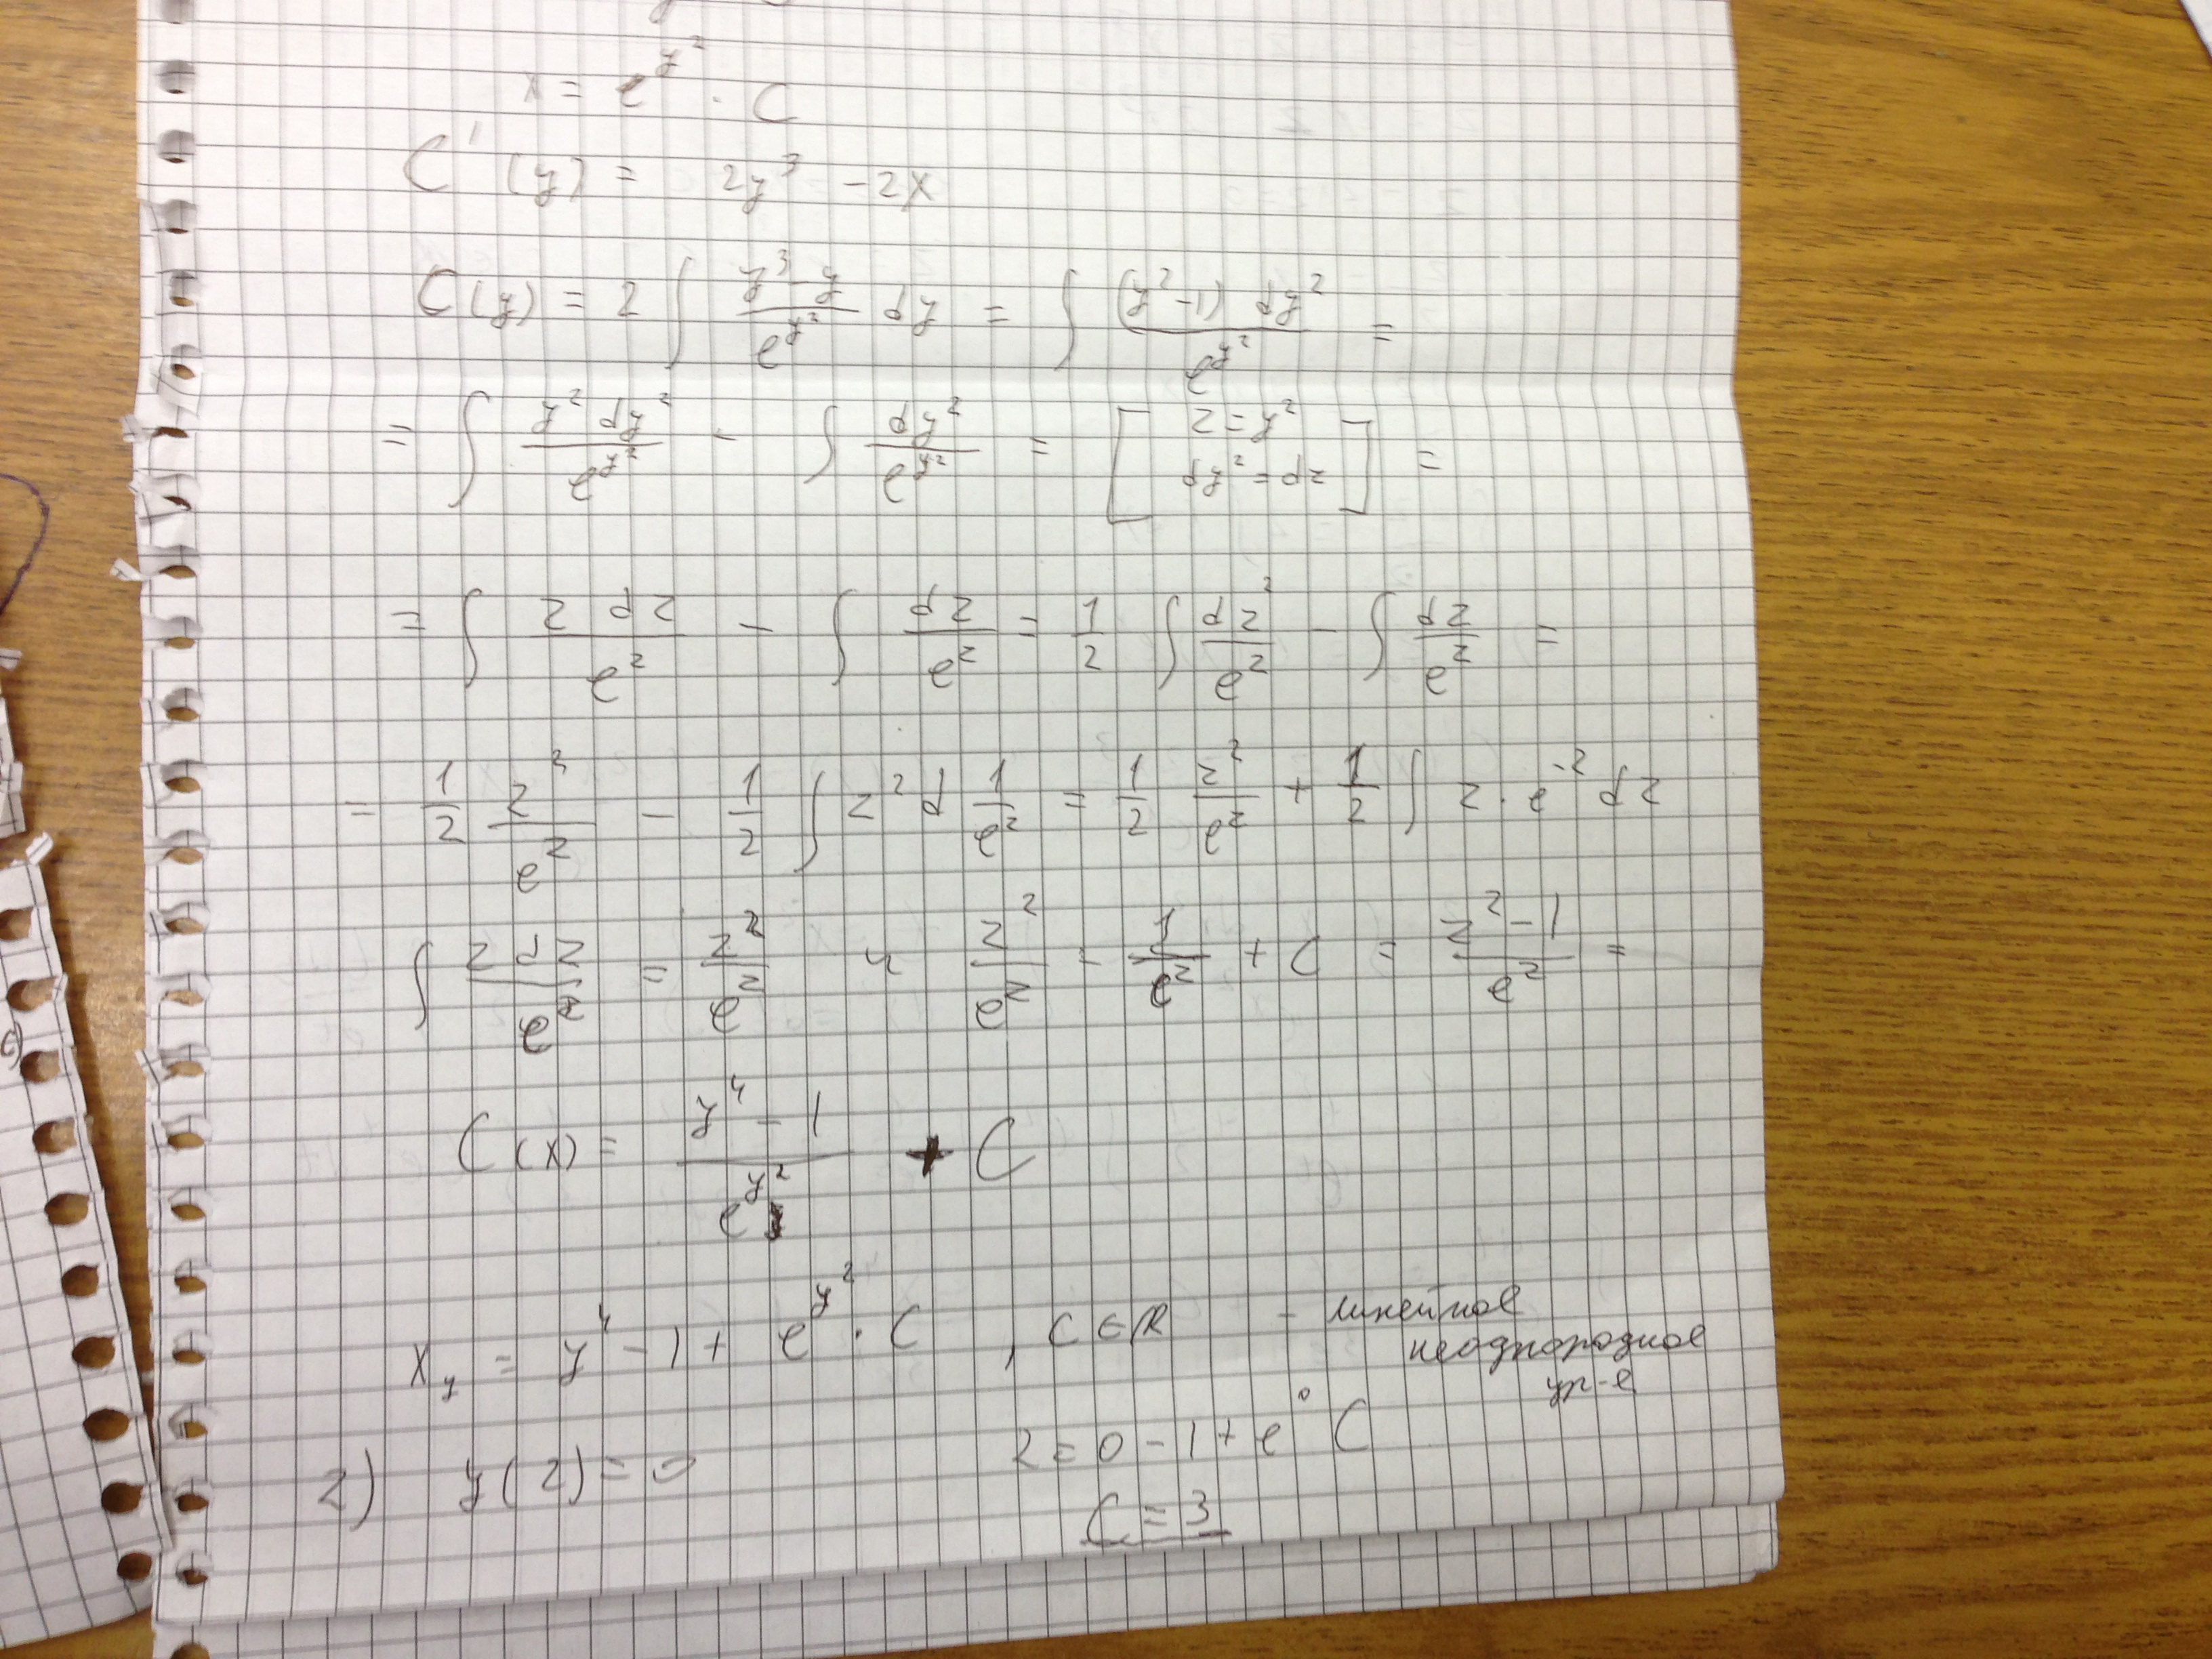 x = e^{y^2} · C
C'(y) = 2y^3 - 2x
C(y) = 2 ∫ \frac{y^3 - y}{e^{y^2}} dy = ∫ \frac{(y^2 - 1) dy^2}{e^{y^2}} =
= ∫ \frac{y^2 dy^2}{e^{y^2}} - ∫ \frac{dy^2}{e^{y^2}} = [ z = y^2 dy^2 = dz ] =
= ∫ \frac{z dz}{e^z} - ∫ \frac{dz}{e^z} = \frac{1}{2} ∫ \frac{dz^2}{e^z} - ∫ \frac{dz}{e^z} =
= \frac{1}{2} \frac{z^2}{e^z} - \frac{1}{2} ∫ z^2 d \frac{1}{e^z} = \frac{1}{2} \frac{z^2}{e^z} + \frac{1}{2} ∫ z · e^{-z} dz
∫ \frac{z dz}{e^z} = \frac{z^2}{e^z} ч \frac{z^2}{e^z} - \frac{1}{e^z} + C = \frac{z^2 - 1}{e^z} =
C(x) = \frac{y^4 - 1}{e^{y^2}} + C
x_y = y^4 - 1 + e^{y^2} · C , C ∈ ℝ - линейное
неоднородное
ур-е
2) y(2) = 0 2 = 0 - 1 + e^0 C
C = 3